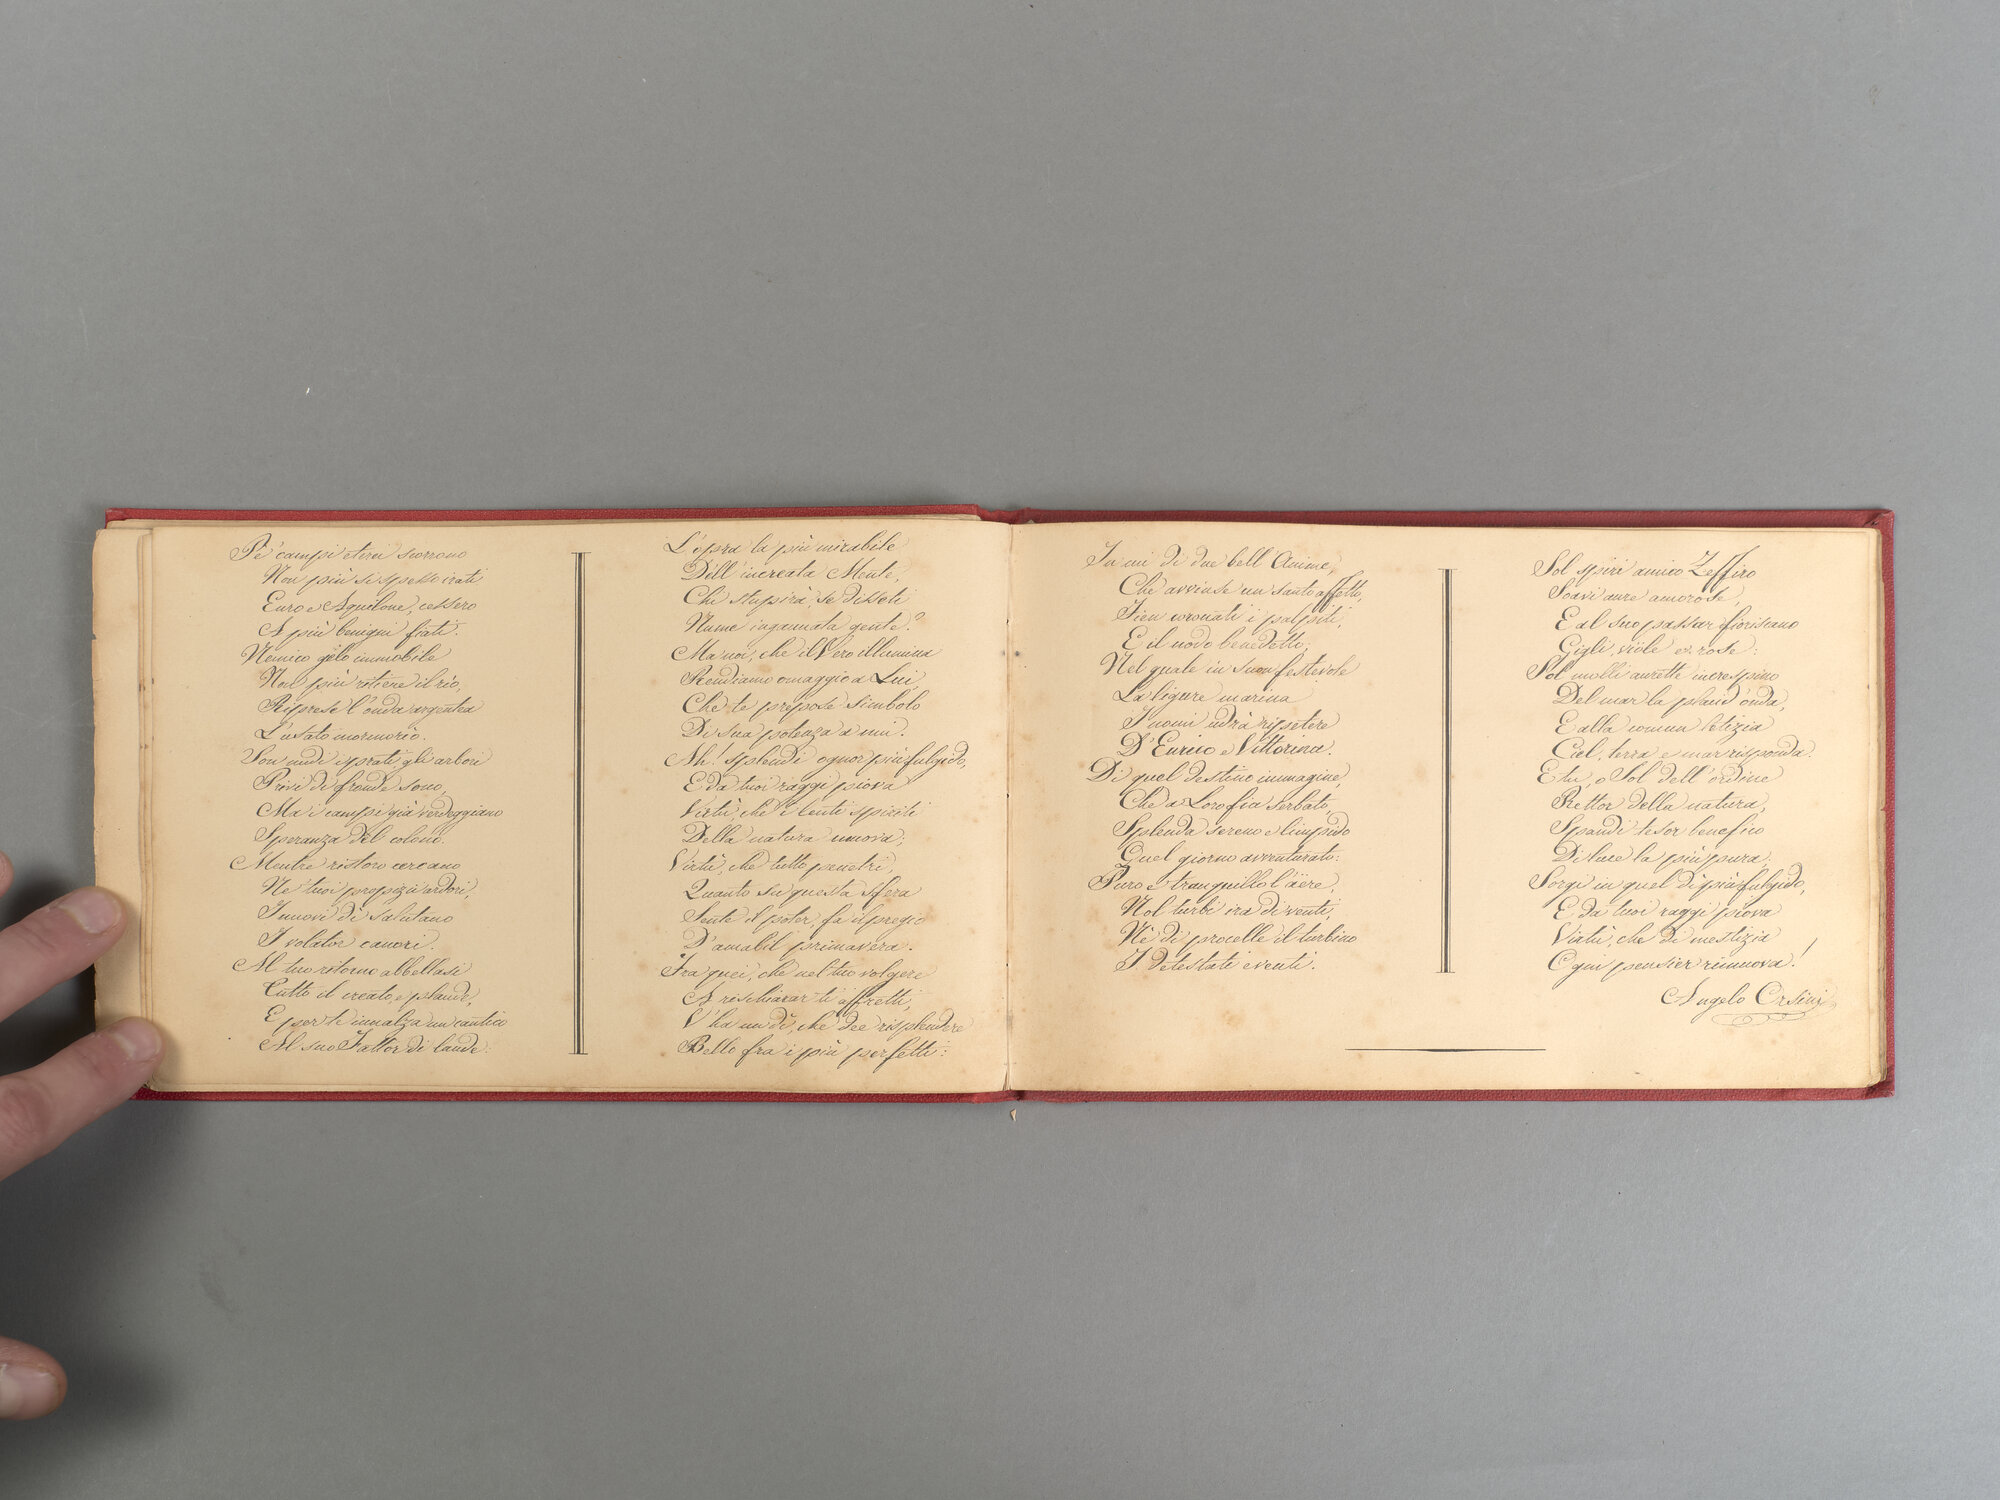 Pe' campi eterei scorrono
Non più sì spesso irati
Euro e Aquilone, cessero
A più benigni fiati.
Nemico gelo immobile
Non più ritiene il rio,
Riprese l'onda argentea
L'usato mormorio.
Son nudi e sprati gli arbori
Privi di fronde sono,
Ma i campi già verdeggiano
Speranza del colono.
Mentre ristoro cercano
Ne' tuoi propizii ardori,
I nuovi dì salutano
I volator canori.
Al tuo ritorno abbellasi
Tutto il creato, e plaude,
E per te innalza un cantico
Al suo Fattor di laude.
L'opra la più mirabile
Dell'increata Mente,
Chi stupirà, se disseti
Nume ingannata gente?
Ma noi, che il Vero illumina
Rendiamo omaggio a Lui,
Che te propose simbolo
Di sua potenza a nui.
Ah! splendi ognor più fulgido,
E da tuoi raggi piova
Virtù, che i lenti spiriti
Della natura innova;
Virtù, che tutto penetri,
Quanto su questa sfera
Sente il poter, fa il pregio
D'amabil primavera.
Fra quei, che nel tuo volgere
A rischiarar ti affretti,
V'ha un dì, che dee risplendere
Bello fra i più perfetti:
In cui di due bell'Anime,
Che avvinse un santo affetto,
Fien coronati i palpiti,
E il nodo benedetti;
Nel quale in suon festevole
La ligure marina
I nomi udrà ripetere
D'Enrico e Vittorina.
Di quel destino immagine,
Che a Loro fia serbato,
Splenda sereno e limpido
Quel giorno avventurato:
Puro e tranquillo l'äere,
Nol turbi ira di venti,
Nè di procelle il turbino
I detestati eventi.
Sol spiri amico Zeffiro
Soavi aure amorose,
E al suo passar fioriscano
Gigli, viole e rose:
Sol molli aurette increspino
Del mar la placid'onda,
E alla comun letizia
Ciel, terra e mar risponda.
E tu, o Sol dell'ordine
Rettor della natura,
Spandi tesor benefico
Di luce la più pura;
Sorgi in quel dì più fulgido,
E da tuoi raggi piova
Virtù, che di mestizia
Ogni pensier rimuova!
Angelo Orsini